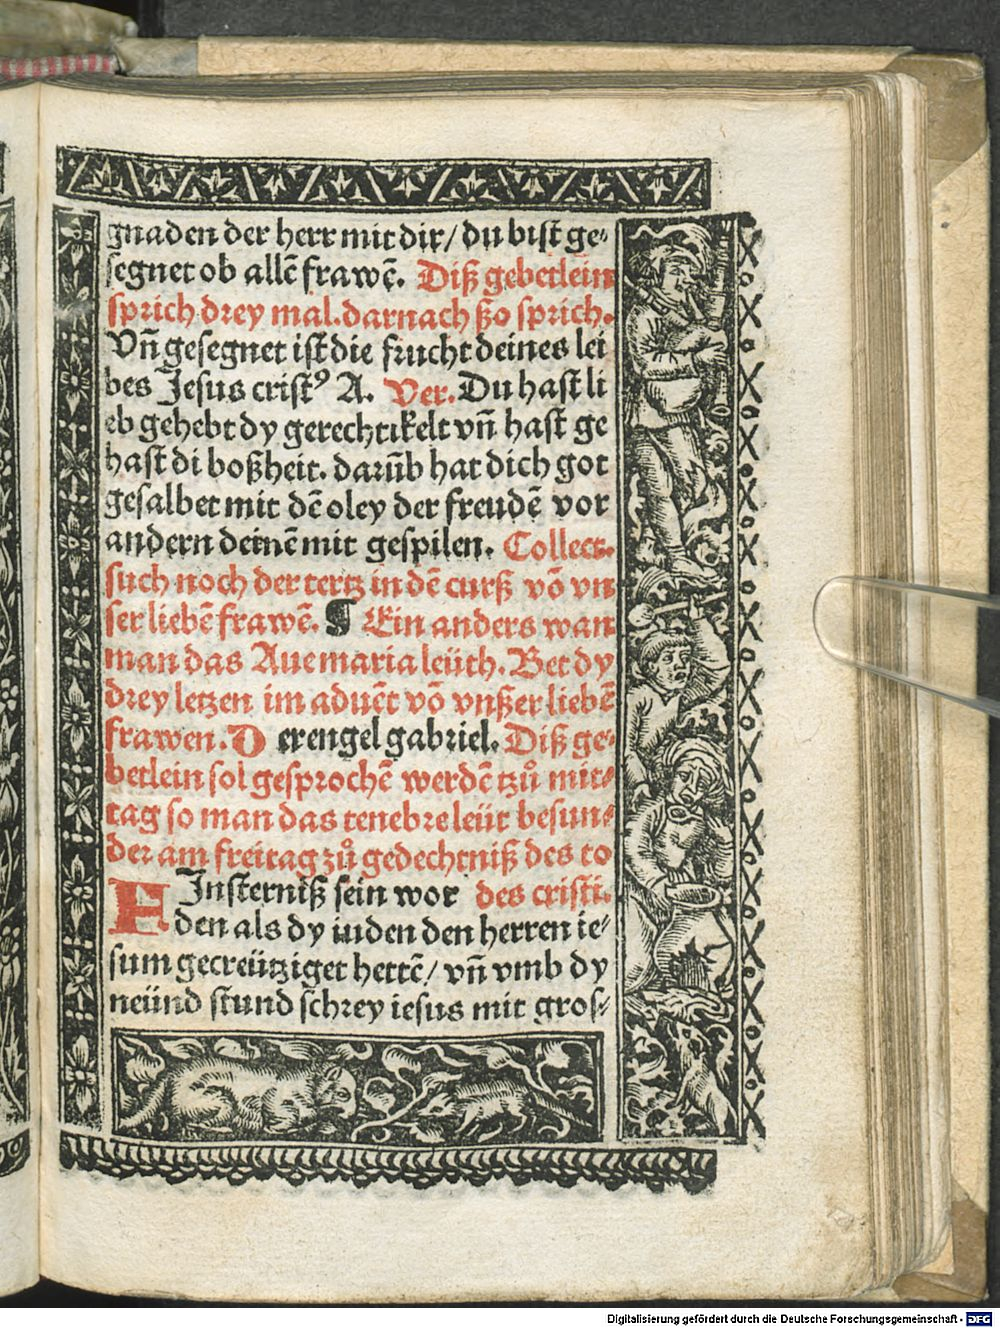 gnaden der herr mit dir/ du bist ge⸗
segnet ob allē frawē. Diß gebetlein
sprich drey mal. darnach ßo sprich.
Vñ gesegnet ist die frucht deines lei
bes Jesus cristꝰ A. Ver. Du hast li
eb gehebt dy gerechtikeit vñ hast ge
hast di boßheit. darūb hat dich got
gesalbet mit dē oley der freudē vor
andern deinē mit gespilen. Collect.
such noch der tertz in dē curß vō vn
ser liebē frawē. ¶ Ein anders wan
man das Aue maria leüth. Bet dy
drey letzen im aduēt vō vnßer liebē
frawen. D erengel gabriel. Diß ge⸗
betlein sol gesprochē werdē tzů mit⸗
tag so man das tenebre leüt besun⸗
der am freitag zů gedechtniß des to
FInsterniß sein wor des cristi.
den als dy iuden den herren ie⸗
sum gecreütziget hettē/ vñ vmb dy
neünd stund schrey iesus mit gros⸗
Digitalisierung gefördert durch die Deutsche Forschungsgemeinschaft - DFG